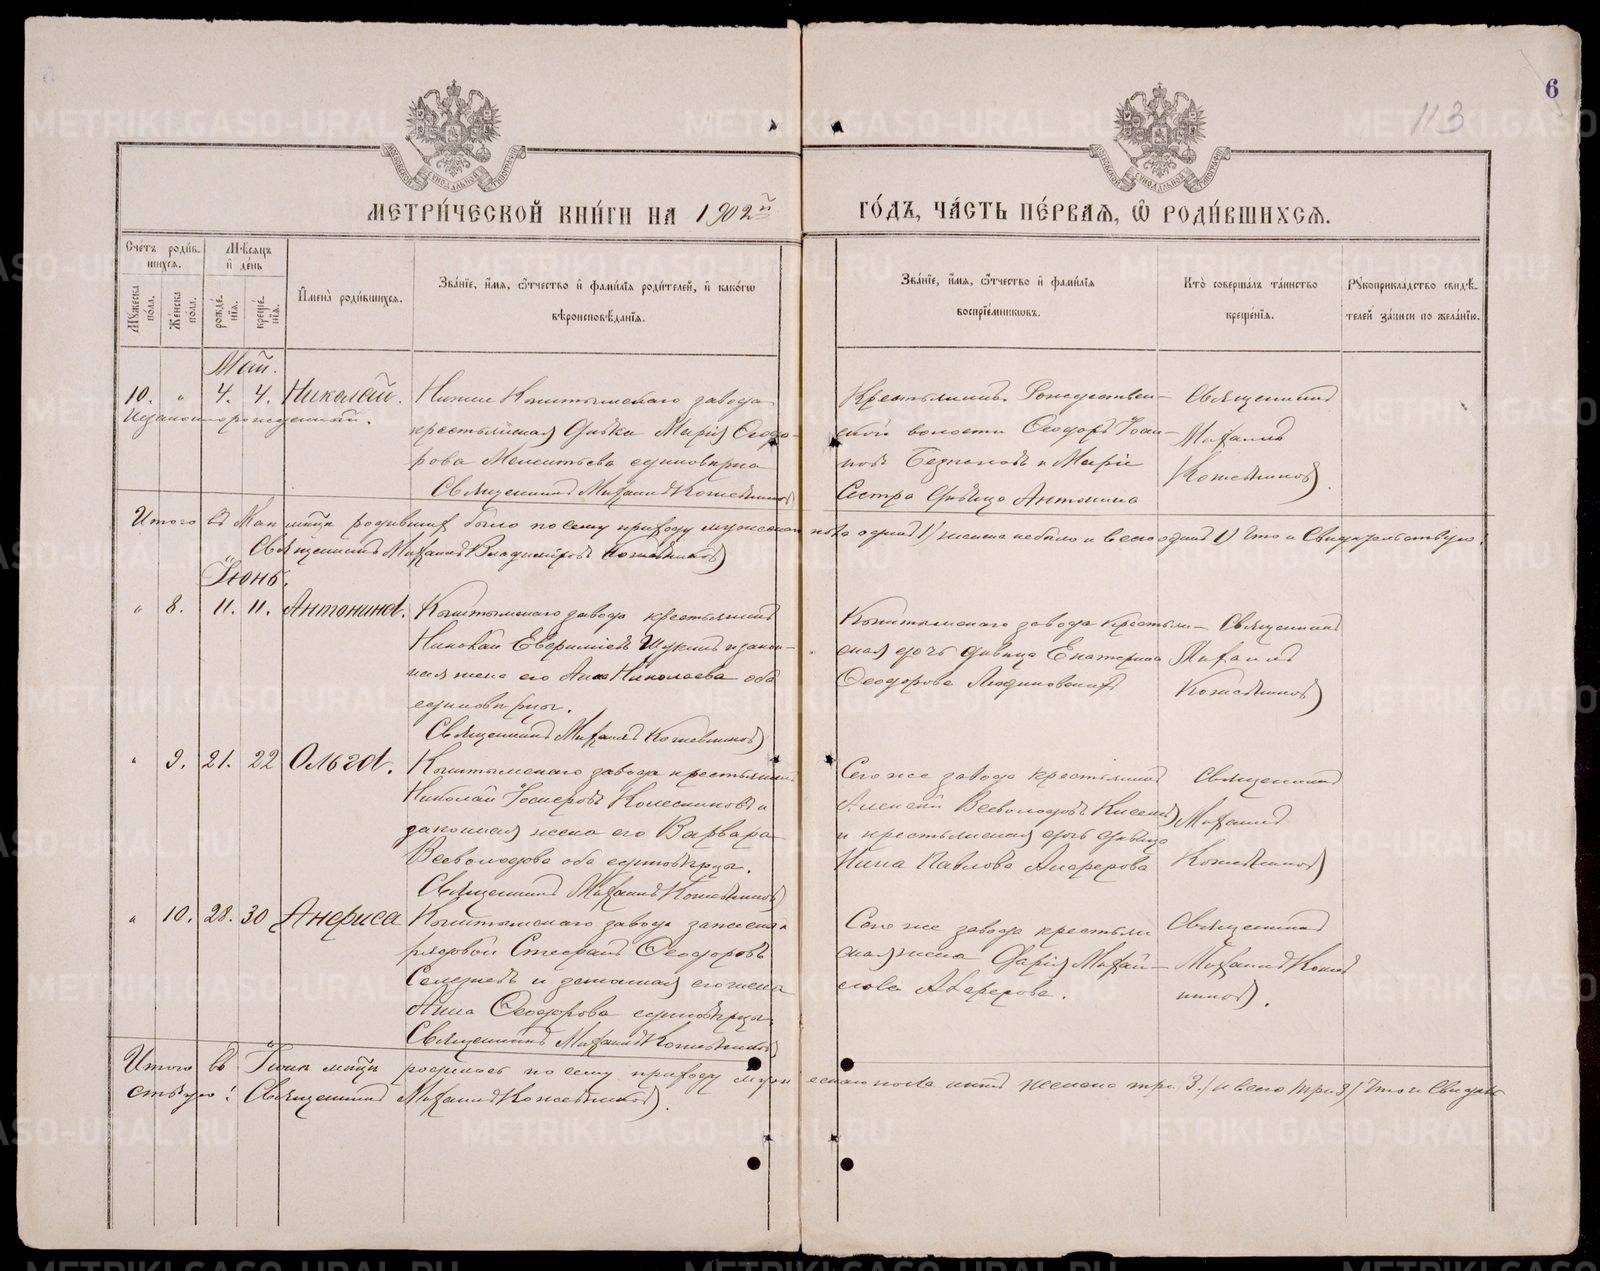 6
113
МЕТРИ́ЧЕСКОЙ КНИ́ГИ НА 1902й ГО́ДЪ, ЧА́СТЬ ПЕ́РВАЯ, Ѡ РОДИ́ВШИХСЯ.
Сче́тъ роди́в-
шихся.
Му́жеска по́ла.
Же́нска по́ла.
Мѣ́сяцъ и де́нь
рожде́-
нія.
креще́-
нія.
Имена̀ роди́вшихся.
Зва́ніе, и́мя, ѻ́тчество и фами́лія роди́телей, и како́гѡ
вѣроисповѣ́данія.
Зва́ніе, и́мя, ѻ́тчество и фами́лія
воспріе́мникѡвъ.
Кто̀ соверша́лъ та́инство
креще́нія.
Рꙋкоприкла́дство свидѣ́-
телей за́писи по жела́нію.
Май.
10. " 4. 4. Николай.
Незаконнорожденный.
Нижне Кыштымскаго завода
крестьянская дѣвка Марія Ѳеодо-
рова единовѣрка
Священникъ Михаилъ Кожевниковъ
Крестьянинъ Рождествен-
ской волости Ѳеодоръ Іоан-
новъ и Марія
Сестра дѣвица Антонина
Священникъ
Михаилъ
Кожевниковъ.
Итого въ Маѣ мѣсяцѣ родившихся было по сему приходу мужескаго пола одинъ 1/ женска небыло и всего одинъ 1) Что и Свидѣтельствую:
Священникъ Михаилъ Владиміровъ Кожевниковъ
Іюнь.
" 8. 11. 11. Антонина.
Кыштымскаго завода крестьянинъ
Николай Щукинъ и закон-
ная жена его Анна Николаева оба
единовѣрцы.
Священникъ Михаилъ Кожевниковъ
Кыштымскаго завода крестьян-
ская дочь дѣвица Екатерина
Ѳеодорова
Священникъ
Михаилъ
Кожевниковъ
" 9. 21. 22 Ольга.
Кыштымскаго завода крестьянинъ
Николай Колесниковъ и
законная жена его Варвара
Всеволодова оба единовѣрцы.
Священникъ Михаилъ Кожевниковъ
Сего же завода крестьянинъ
Алексѣй Всеволодовъ
и крестьянская дочь дѣвица
Нина Павлова
Священникъ
Михаилъ
Кожевниковъ
" 10. 28. 30 Анфиса
Кыштымскаго завода
рядовой Стефанъ Ѳеодоровъ
Селезневъ и законная его жена
Анна Ѳеодорова единовѣрцы.
Священникъ Михаилъ Кожевниковъ
Сего же завода крестьян-
ская жена Дарія Михай-
лова
Священникъ
Михаилъ Кожев-
никовъ.
Итого въ Іюнѣ мѣсяцѣ родилось по сему приходу мужескаго пола женска три 3./ и всего три 3/ Что и Свидѣтель-
ствую: Священникъ Михаилъ Кожевниковъ.
METRIKI.GASO-URAL.RU